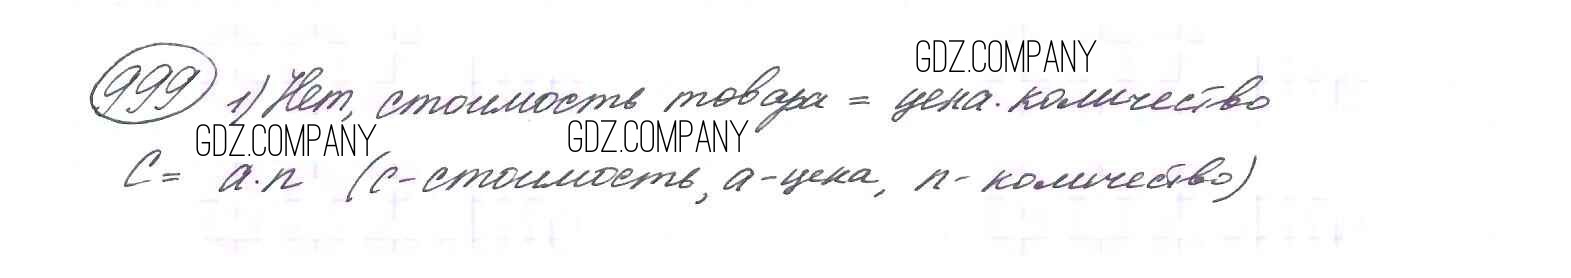 GDZ.COMPANY
999 1) Нет, стоимость товара = цена · количество
GDZ.COMPANY GDZ.COMPANY
C = a · n (c - стоимость, a - цена, n - количество)